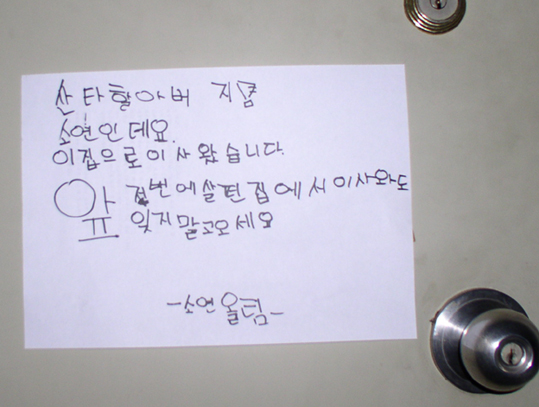 산타할아버 지
소연인데요.
이집으로이사왔습니다.
저번에살던집에서이사와도
잊지말고오세요
-소연올림-